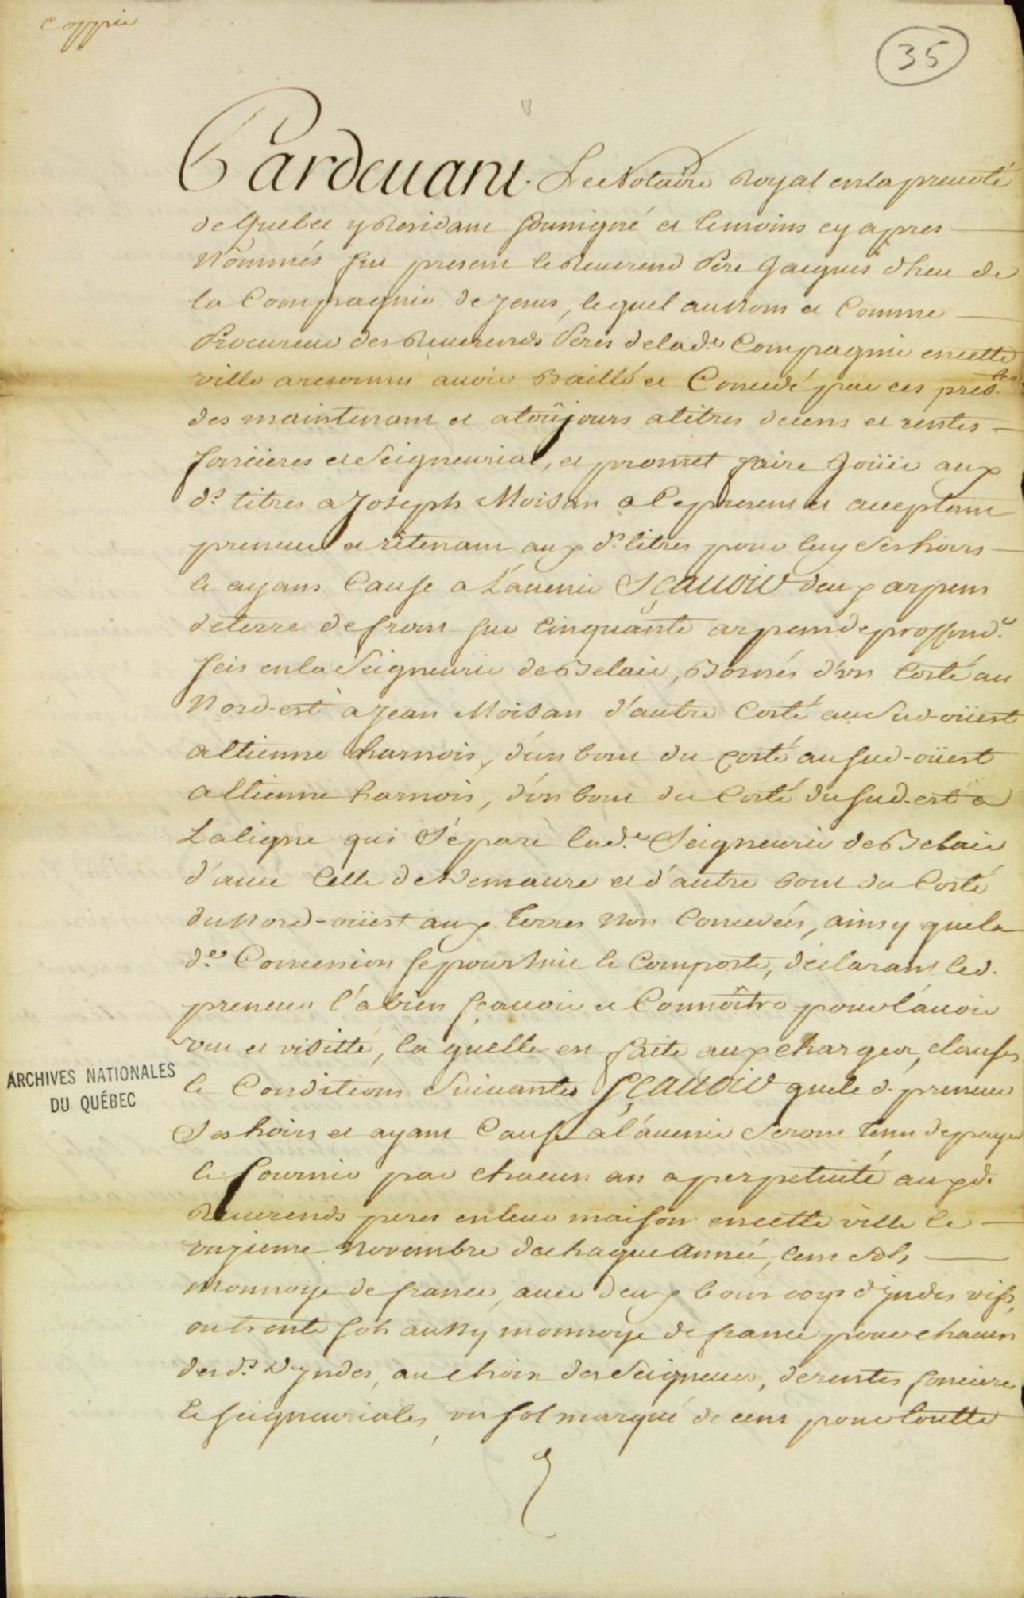 Coppie
35
Pardevant Le Notaire Royal en la prevoté
de Quebec y Residant soussigné et temoins cy apres
Nommés fut present le Reverend Pere Jacques d'heu de
la Compagnie de Jesus, lequel au nom et Comme
Procureur des Reverends Peres de la de Compagnie en cette
ville a reconnu avoir Baillé et Concedé par ces presentes
des maintenant et a toûjours a titres de cens et rentes
foncieres et Seigneurial, et promet faire Joüir aux
ds titres a Joseph Moisan a ce present et acceptant
preneur et retenant aux ds titres pour luy ses hoirs
et ayans Cause a L'avenir SCAVOIR deux arpens
de terre de front sur Cinquante arpens de proffond.r
scis en la Seigneurie de Belair, Bornés d'un Costé au
Nord-est à Jean Moisan d'autre Costé au Sud-oüest
a Etienne harnois, d'un bout du costé au sud-oüest
a Etienne harnois, d'un bout du Costé du sud-est a
La ligne qui Sépare lad.e Seigneurie de Belair
d'avec Celle de Demaure et d'autre bout du Costé
du Nord-oüest aux Terres Non Concedées, ainsy que la
d.e Concession se poursuit et comporte, déclarant led.
preneur l'a bien sçavoir et Connoître pour l'avoir
vue et visitté, la quelle est faite aux charges, clauses
et Conditions Suivantes SÇAVOIR que le d. preneur
Ses hoirs et ayant Cause a l'avenir Seront tenu de payer
et fournir par chacun an a perpetuité aux d.
Reverends peres en leur maison en cette ville le
onzieme Novembre de chaque Année, cent sols
monnoye de france, avec deux bons coqs d'yndes vifs,
ou trente sols aussy monnoye de france pour chacun
des ds D'yndes, au choix des Seigneurs, de rentes foncieres
et seigneuriales, un sol marqué de cens pour toutte
ARCHIVES NATIONALES
DU QUÉBEC